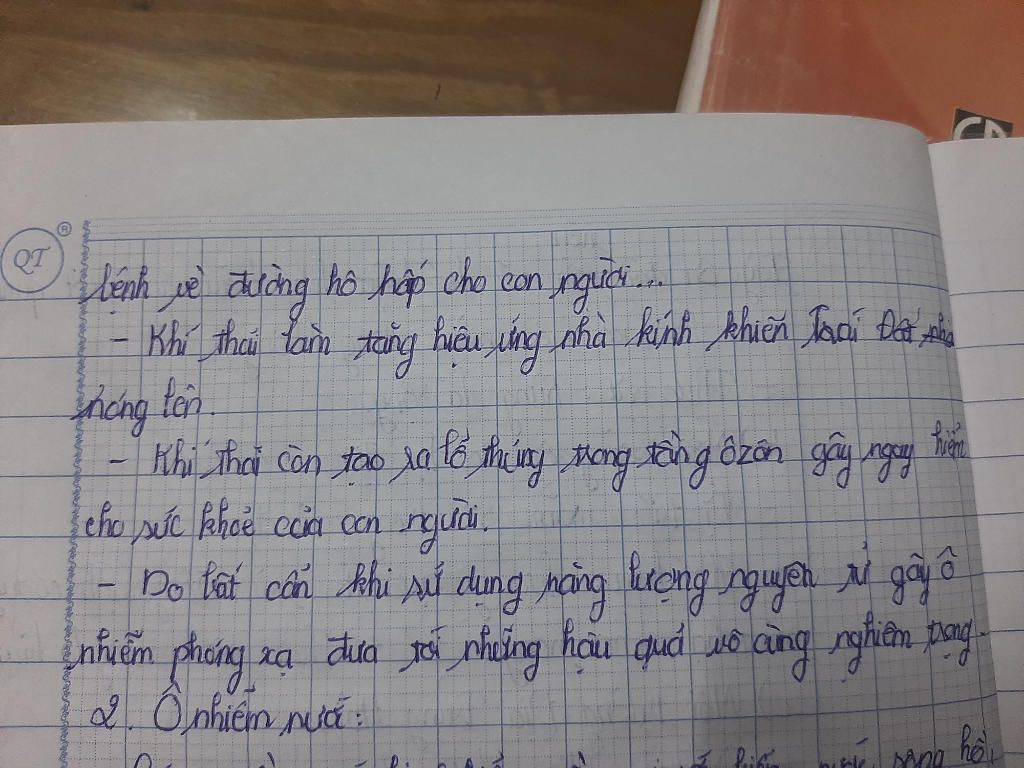 QT ®
bệnh về đường hô hấp cho con người...
- Khí thải làm tăng hiệu ứng nhà kính khiến Trái Đất
nóng lên.
- Khí thải còn tạo ra lỗ thủng trong tầng ôzôn gây nguy hiểm
cho sức khoẻ của con người.
- Do bất cẩn khi sử dụng năng lượng nguyên tử gây ô
nhiễm phóng xạ đưa tới những hậu quả vô cùng nghiêm trọng.
2. Ô nhiễm nước: